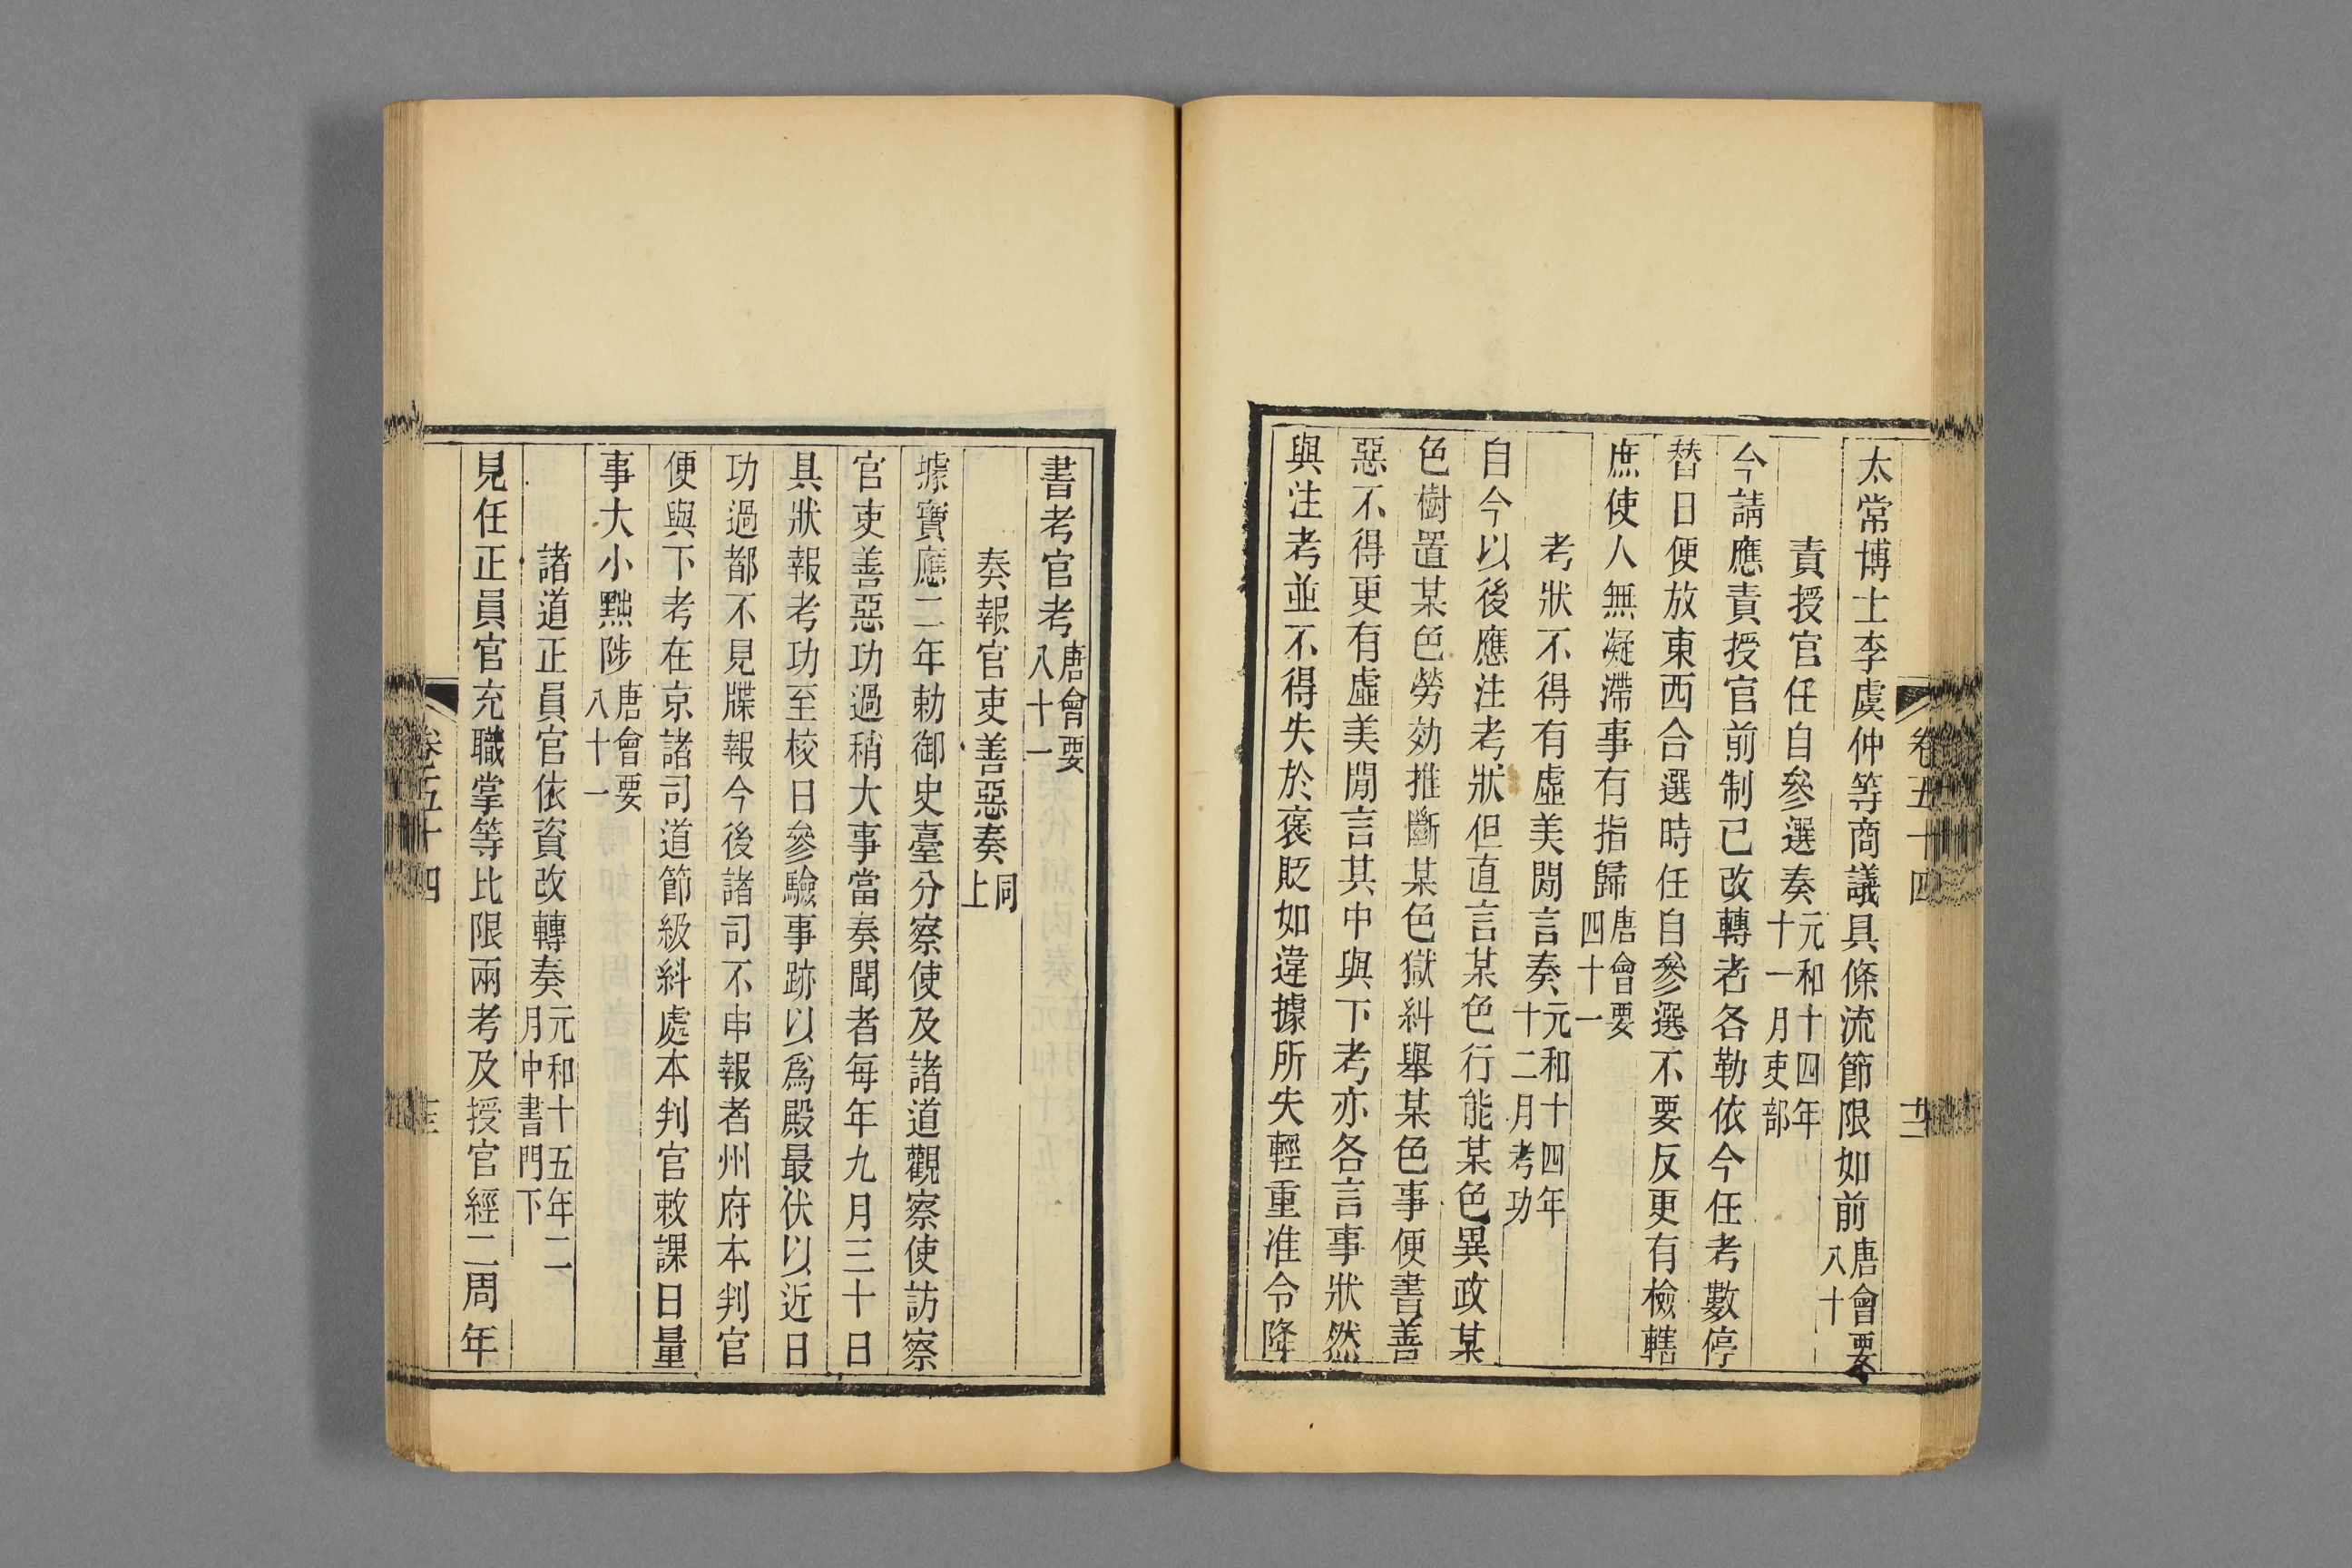 太常博士李虞仲等商議具條流節限如前唐會要八十
責授官任自參選奏元和十四年十一月吏部
今請應責授官前制已改轉者各勒依今任考數停
替日便放東西合選時任自參選不要反更有檢轄
庶使人無凝滯事有指歸唐會要四十一
考狀不得有虛美閒言奏元和十四年十二月考功
自今以後應注考狀但直言某色行能某色異政某
色樹置某色勞効推斷某色獄糾舉某色事便書善
惡不得更有虛美閒言其中與下考亦各言事狀然
與注考並不得失於褒貶如違據所失輕重准令降
書考官考唐會要八十一
奏報官吏善惡奏同上
據寶應二年勅御史臺分察使及諸道觀察使訪察
官吏善惡功過稍大事當奏聞者每年九月三十日
具狀報考功至校日參驗事跡以爲殿最伏以近日
功過都不見牒報今後諸司不申報者州府本判官
便與下考在京諸司道節級糾處本判官敕課日量
事大小黜陟唐會要八十一
諸道正員官依資改轉奏元和十五年二月中書門下
見任正員官充職掌等比限兩考及授官經二周年
卷五十四